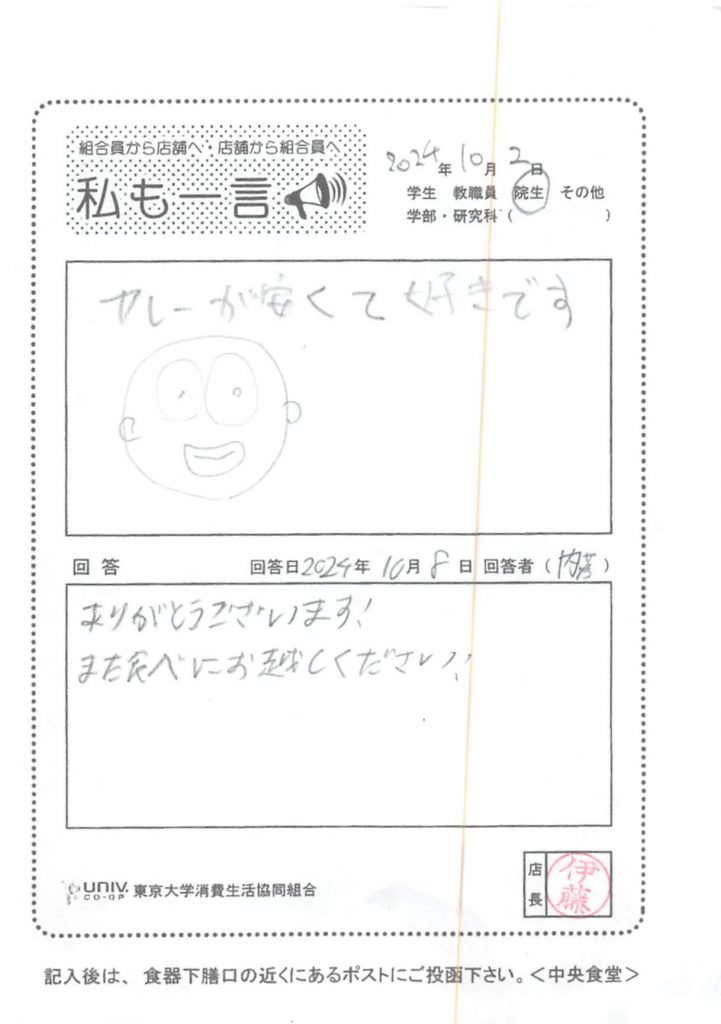 組合員から店舗へ・店舗から組合員へ
私も一言
2024年10月2日
学生 教職員 院生 その他
学部・研究科( )
カレーが安くて好きです
回答 回答日2024年10月8日 回答者(内藤)
ありがとうございます!
また食べにお越しください!!
店長 伊藤
UNIV. CO-OP 東京大学消費生活協同組合
記入後は、食器下膳口の近くにあるポストにご投函下さい。<中央食堂>